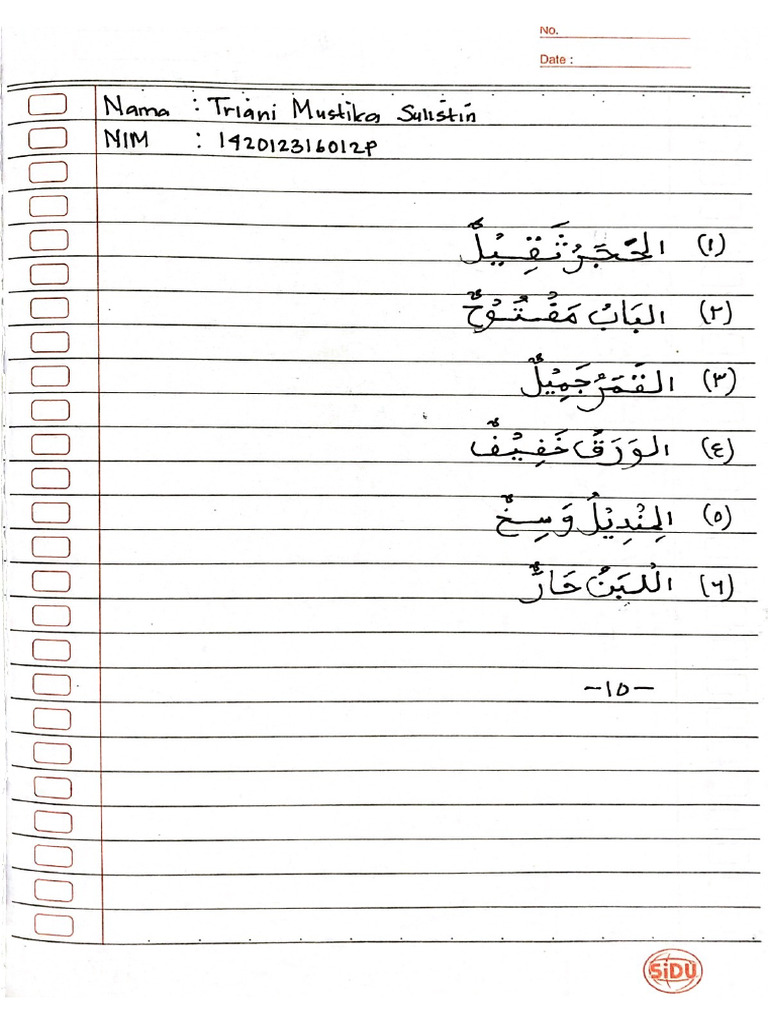 No.
Date :
Nama : Triani Mustika Sulistin
NIM : 142012316012P
(١) الحَجَرُ ثَقِيْلٌ
(٢) البَابُ مَفْتُوْحٌ
(٣) القَمَرُ جَمِيْلٌ
(٤) الوَرَقُ خَفِيْفٌ
(٥) المِنْدِيْلُ وَسِخٌ
(٦) اللَّبَنُ حَارٌّ
-١٥-
SiDU